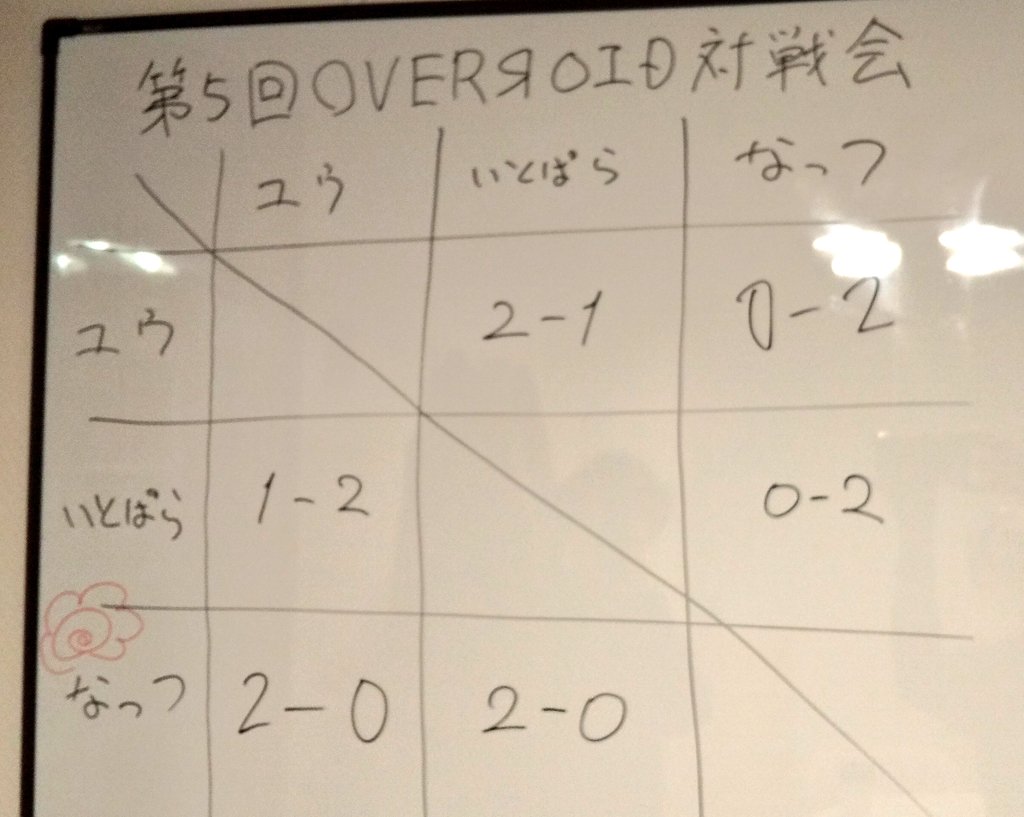 第5回OVERЯOIĐ対戦会
ユウ いとぱら なっつ
ユウ 2-1 0-2
いとぱら 1-2 0-2
なっつ 2-0 2-0